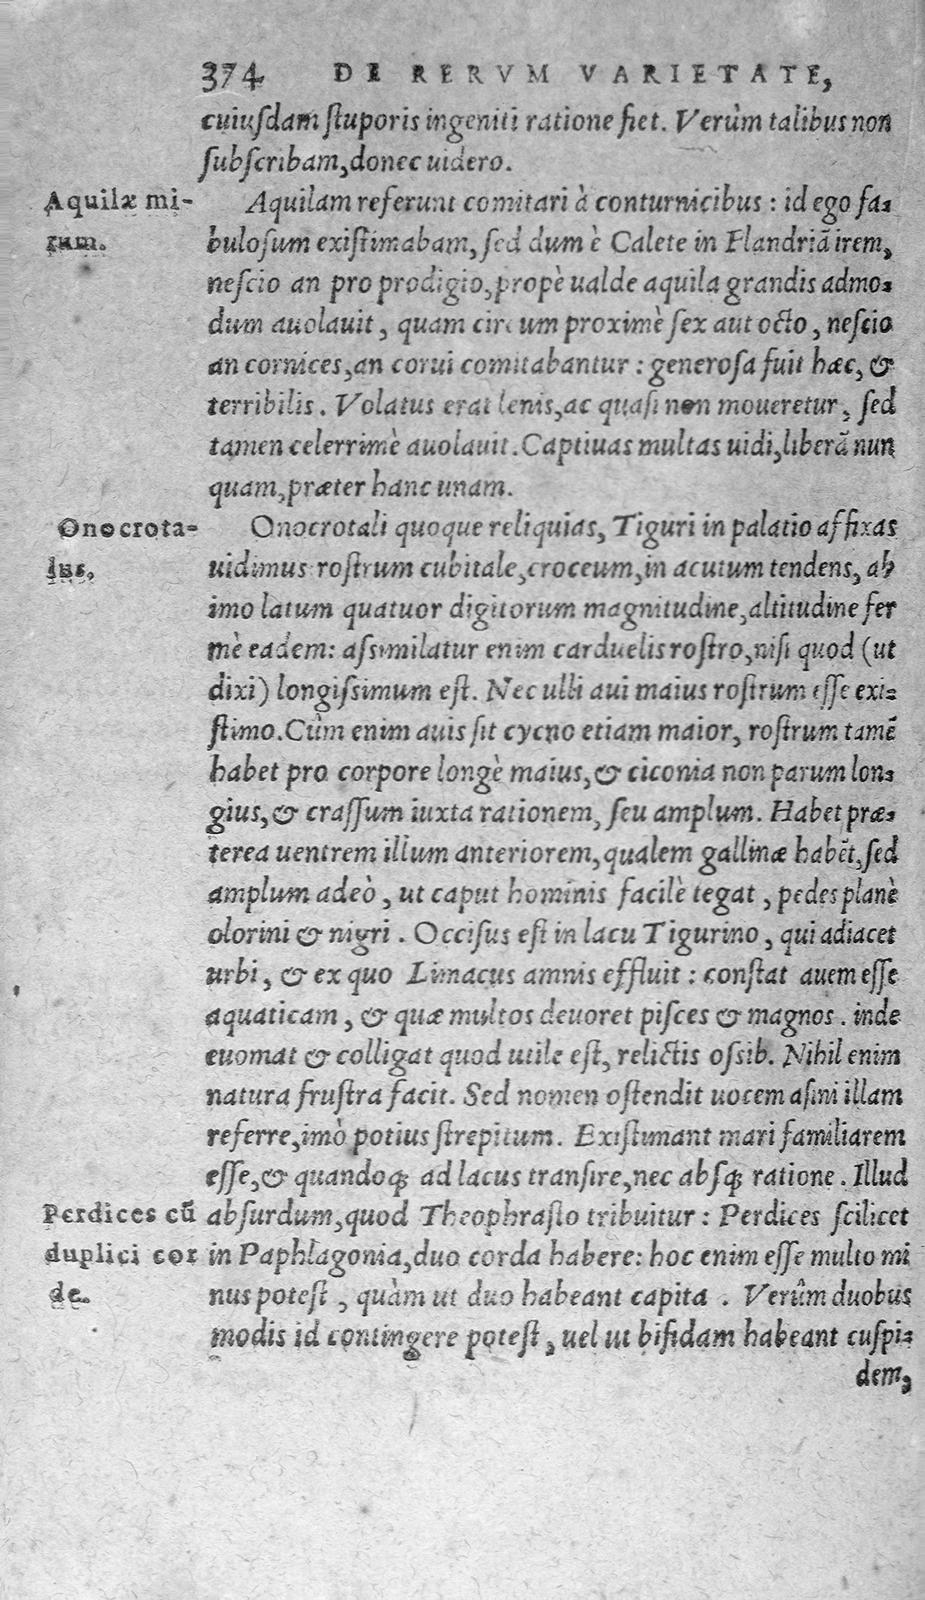 374 DE RERVM VARIETATE,
cuiusdam stuporis ingeniti ratione fiet. Verùm talibus non
subscribam, donec uidero.
Aquilæ mi-
rum.
Aquilam referunt comitari à conturnicibus : id ego fa-
bulosum existimabam, sed dum è Calete in Flandriā irem,
nescio an pro prodigio, propè ualde aquila grandis admo-
dum auolauit, quam circum proximè sex aut octo, nescio
an cornices, an corui comitabantur : generosa fuit hæc, &
terribilis. Volatus erat lenis, ac quasi non moueretur, sed
tamen celerrimè auolauit. Captiuas multas uidi, liberā nun
quam, præter hanc unam.
Onocrota-
lus.
Onocrotali quoque reliquias, Tiguri in palatio affixas
uidimus rostrum cubitale, croceum, in acutum tendens, ab
imo latum quatuor digitorum magnitudine, altitudine fer
mè eadem: assimilatur enim carduelis rostro, nisi quod (ut
dixi) longissimum est. Nec ulli aui maius rostrum esse exi-
stimo. Cùm enim auis sit cycno etiam maior, rostrum tamē
habet pro corpore longè maius, & ciconia non parum lon-
gius, & crassum iuxta rationem, seu amplum. Habet præ-
terea uentrem illum anteriorem, qualem gallinæ habēt, sed
amplum adeò, ut caput hominis facilè tegat, pedes planè
olorini & nigri. Occisus est in lacu Tigurino, qui adiacet
urbi, & ex quo Limacus amnis effluit : constat auem esse
aquaticam, & quæ multos deuoret pisces & magnos. inde
euomat & colligat quod utile est, relictis ossib. Nihil enim
natura frustra facit. Sed nomen ostendit uocem asini illam
referre, imò potius strepitum. Existimant mari familiarem
esse, & quandoq; ad lacus transire, nec absq; ratione. Illud
Perdices cū
duplici cor
de.
absurdum, quod Theophrasto tribuitur : Perdices scilicet
in Paphlagonia, duo corda habere: hoc enim esse multo mi
nus potest, quàm ut duo habeant capita. Verùm duobus
modis id contingere potest, uel ut bifidam habeant cuspi-
dem,